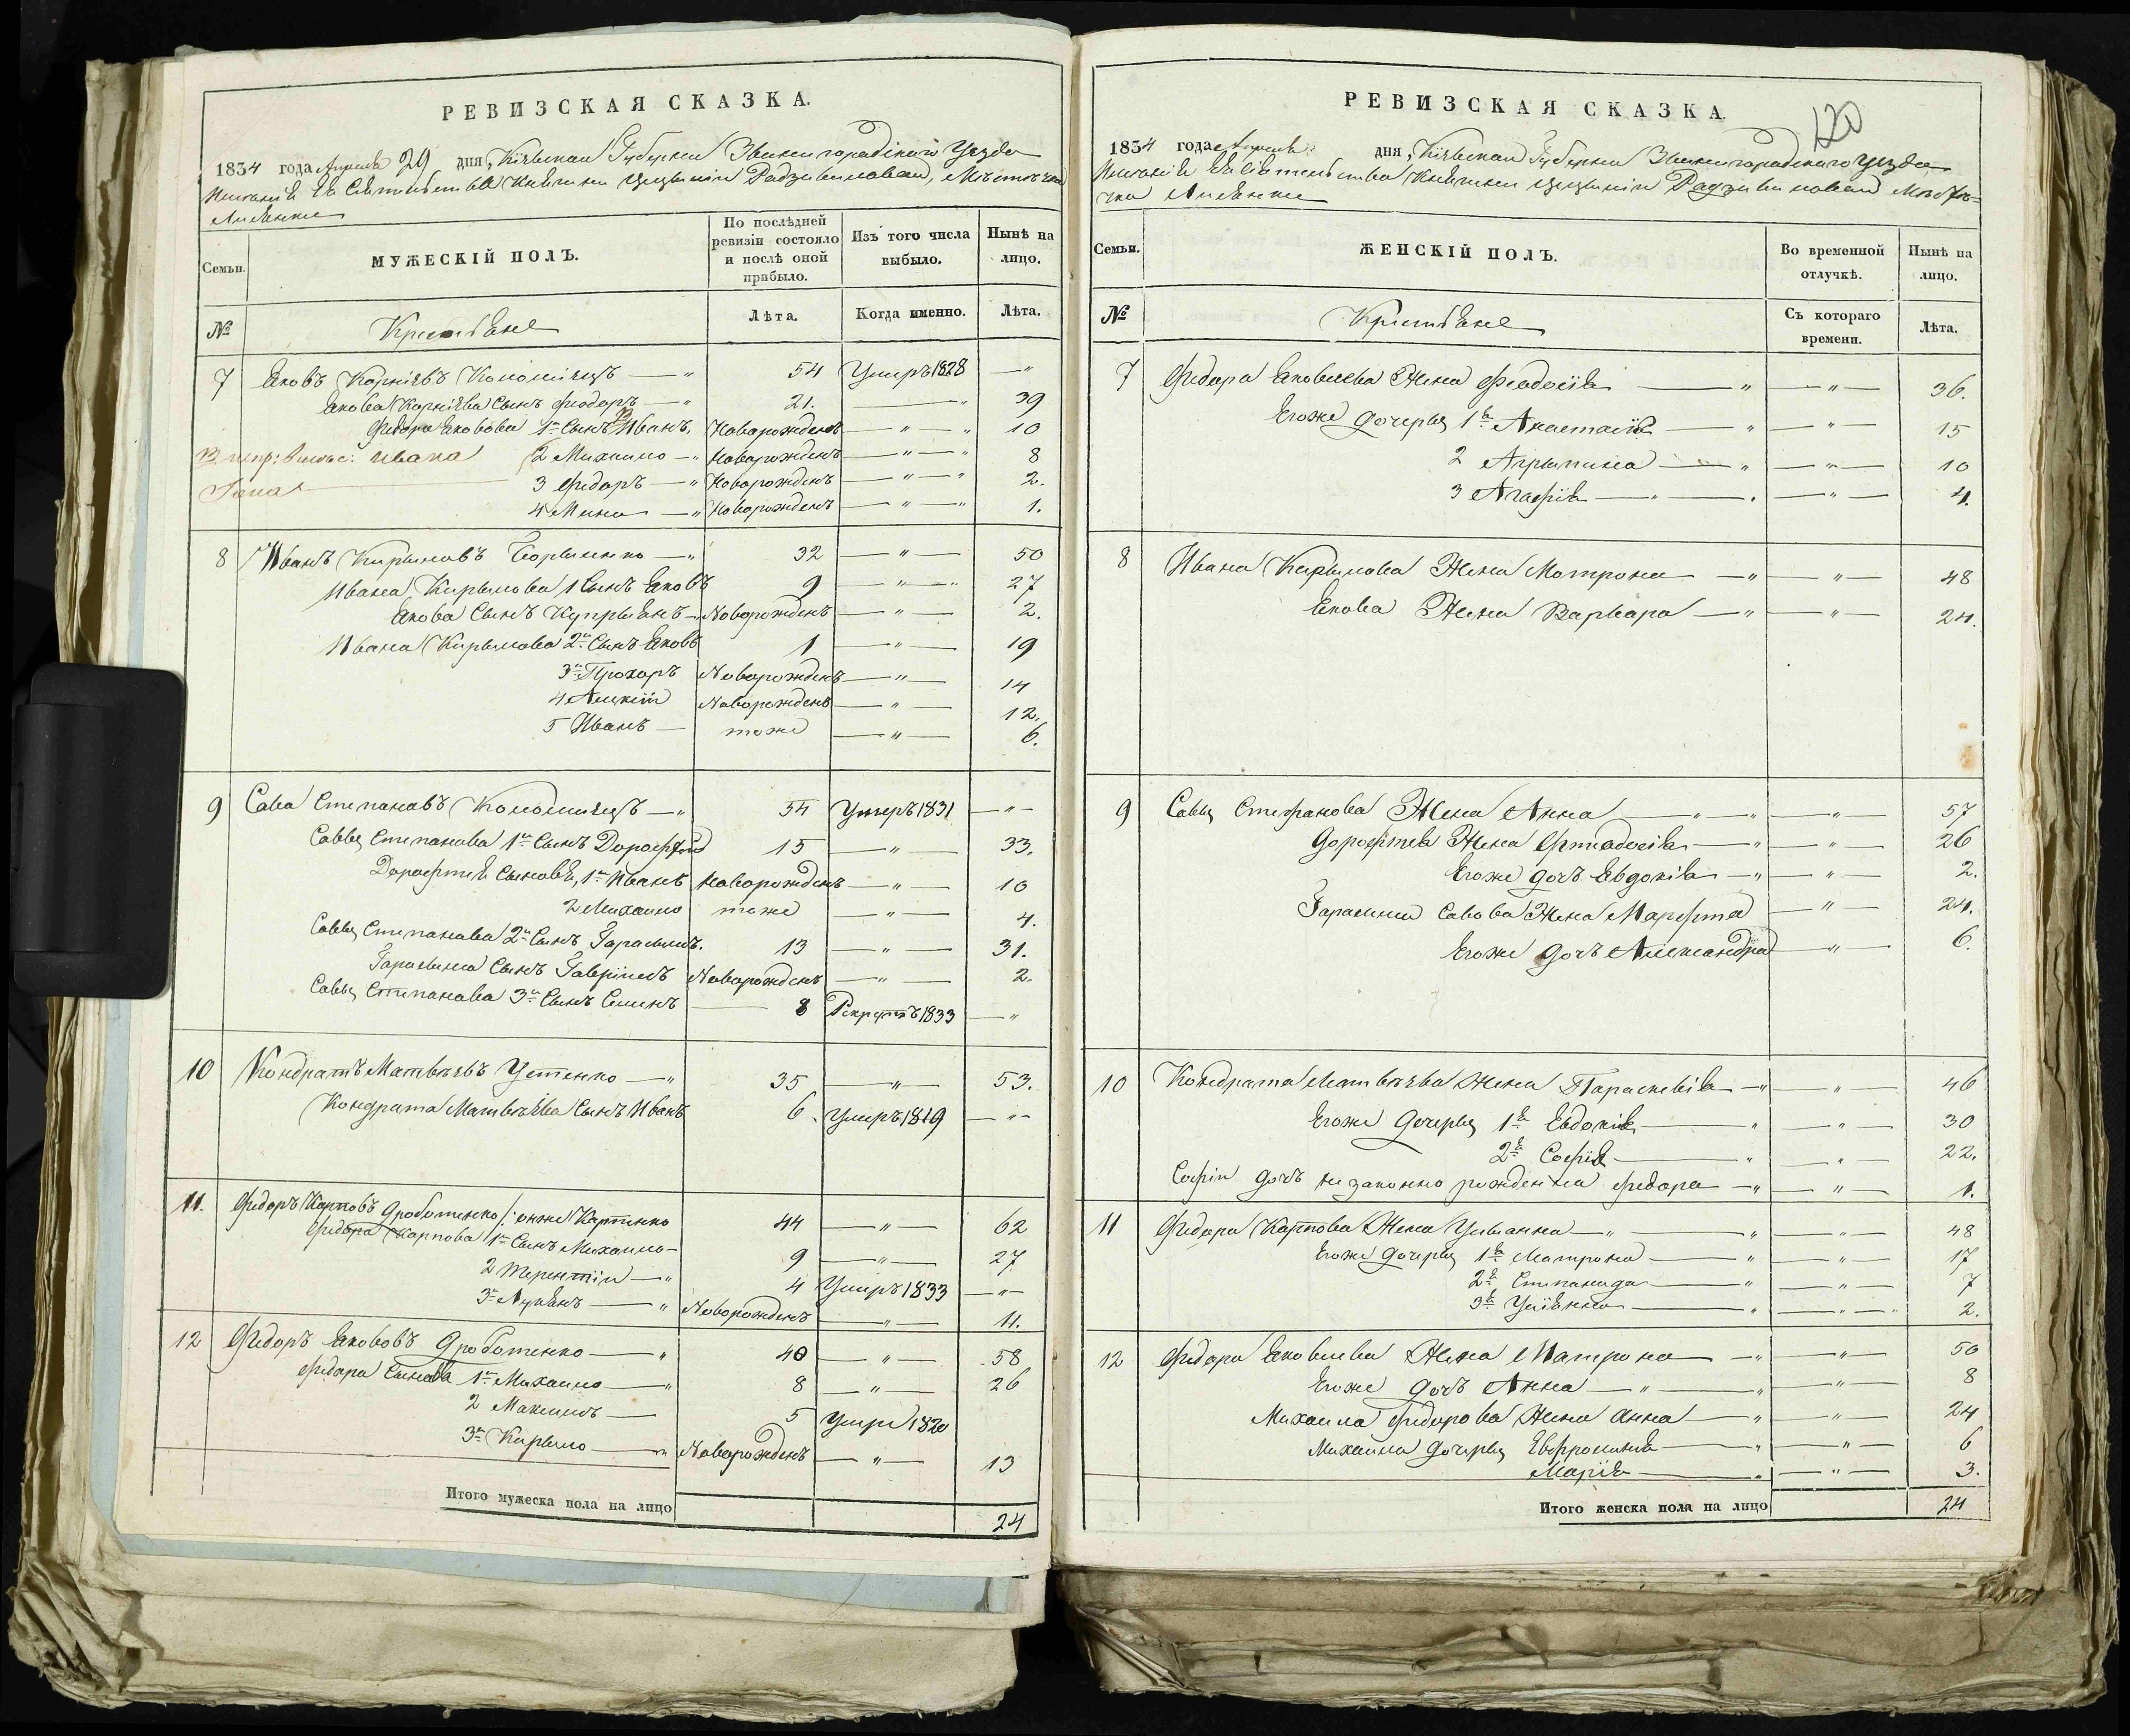 РЕВИЗСКАЯ СКАЗКА.
1834 года Апреля 29 дня, Кіевской Губерніи Звенигородскаго Уѣзда
Имѣнія Ея Свѣтлости Княгини Радзивиловой, Мѣстечка
Лисянки
Семьи.
МУЖЕСКІЙ ПОЛЪ.
По послѣдней ревизіи состояло и послѣ оной прибыло.
Изъ того числа выбыло.
Нынѣ на лицо.
№
Крестьяне
Лѣта.
Когда именно.
Лѣта.
7 Яковъ Корніевъ Коломіецъ — " 54 Умеръ 1828 — "
Якова Корніева Сынъ Феодоръ — " 21. — " 39
Федора Яковова 1й Сынъ Иванъ. Новорожденъ — " — " 10
2 Михайло — " Новорожденъ — " — " 8
Ивана
3 Федоръ — " Новорожденъ — " — " 2.
4 Мина — " Новорожденъ — " — " 1.
8 Иванъ Кирыловъ — " 32 — " — 50
Ивана Кирылова 1 Сынъ Яковъ 9 — " — " 27
Якова Сынъ Купрыянъ — Новорожденъ — " — 2.
Ивана Кирылова 2й Сынъ Яковъ 1 — " — 19
3й Прохоръ Новорожденъ — " — 14
4 Алекѣй Новорожденъ — " — 12.
5 Иванъ — тоже — " — 6.
9 Сава Степановъ Коломіецъ — " 54 Умеръ 1831 — " —
Саввы Степанова 1й Сынъ Дорофей 15 — " — 33.
Дорофтея Сыновья, 1й Иванъ Новорожденъ — " — 10
2 Михайло тоже — " — 4.
Саввы Степанова 2й Сынъ Гарасымъ. 13 — " — 31.
Гарасыма Сынъ Гаврiилъ Новорожденъ — " — 2.
Саввы Степанова 3й Сынъ Семенъ — 8 Рекрутъ 1833 — "
10 Кондратъ Матвѣевъ Устенко — " 35 — " — 53.
Кондрата Матвѣева Сынъ Иванъ 6. Умеръ 1819 — " —
11. Федоръ Карповъ Дроботенко /: онже Карпенко 44 — " — 62
Федора Карпова 1й Сынъ Михайло — 9 — " — 27
2 Терентiй — " 4 Умеръ 1833 — " —
3й Лукьянъ — " Новорожденъ — " — 11.
12 Федоръ Яковъ Дроботенко — " 40 — " — 58
Федора Сыновья 1й Михайло — " 8 — " — 26
2 Максимъ — 5 Умеръ 1820
3й Кирыло — " Новорожденъ — " — 13
Итого мужеска пола на лицо 24
120
РЕВИЗСКАЯ СКАЗКА
1834 года Апреля дня, Кіевской Губерніи Звенигородскаго Уѣзда
Имѣнія Княгини Радзивиловой Мѣсте=
чка Лисянки
Семьи.
ЖЕНСКІЙ ПОЛЪ.
Во временной отлучкѣ.
Нынѣ на лицо.
№
Крестьяне
Съ котораго времени.
Лѣта.
7 Федора Яковлева Жена Феодосія — " — " — 36.
Егоже дочеры 1я Анастасія — " — " — 15
2 Агрыпина — " — " — 10
3 Агафія — " — . — " — 4.
8 Ивана Кирылова Жена Мотрона — " — " — 48
Якова Жена Варвара — " — " — 24.
9 Саввы Стефанова Жена Анна — " — " — " — 57
Дорофтея Жена Фтеадосія — " — " — 26
Егоже дочъ Евдокія — " — " — 2.
Гарасима Савова Жена Марфта — " — 24.
Егоже дочъ Александра — " — 6.
10 Кондрата Матвѣева Жена Параскевія — " — " — 46
Егоже дочеры 1я Евдокія — " — " — 30
2я Софія — " — " — 22.
Софіи дочъ незаконно рожденна Федора — " — " — 1.
11 Федора Карпова Жена Ульянна — " — " — " — 48
Егоже дочеры 1я Матрона — " — " — 17
2я Степанида — " — " — 7
3я Уліянна — " — " — " 2.
12 Федора Яковлева Жена Матрона — " — " — 50
Егоже дочъ Анна — " — " — " — 8
Михаила Федорова Жена Анна — " — " — 24
Михаила дочеры Евфросинія — " — " — 6
Марія — " — " — 3.
Итого женска пола на лицо 24